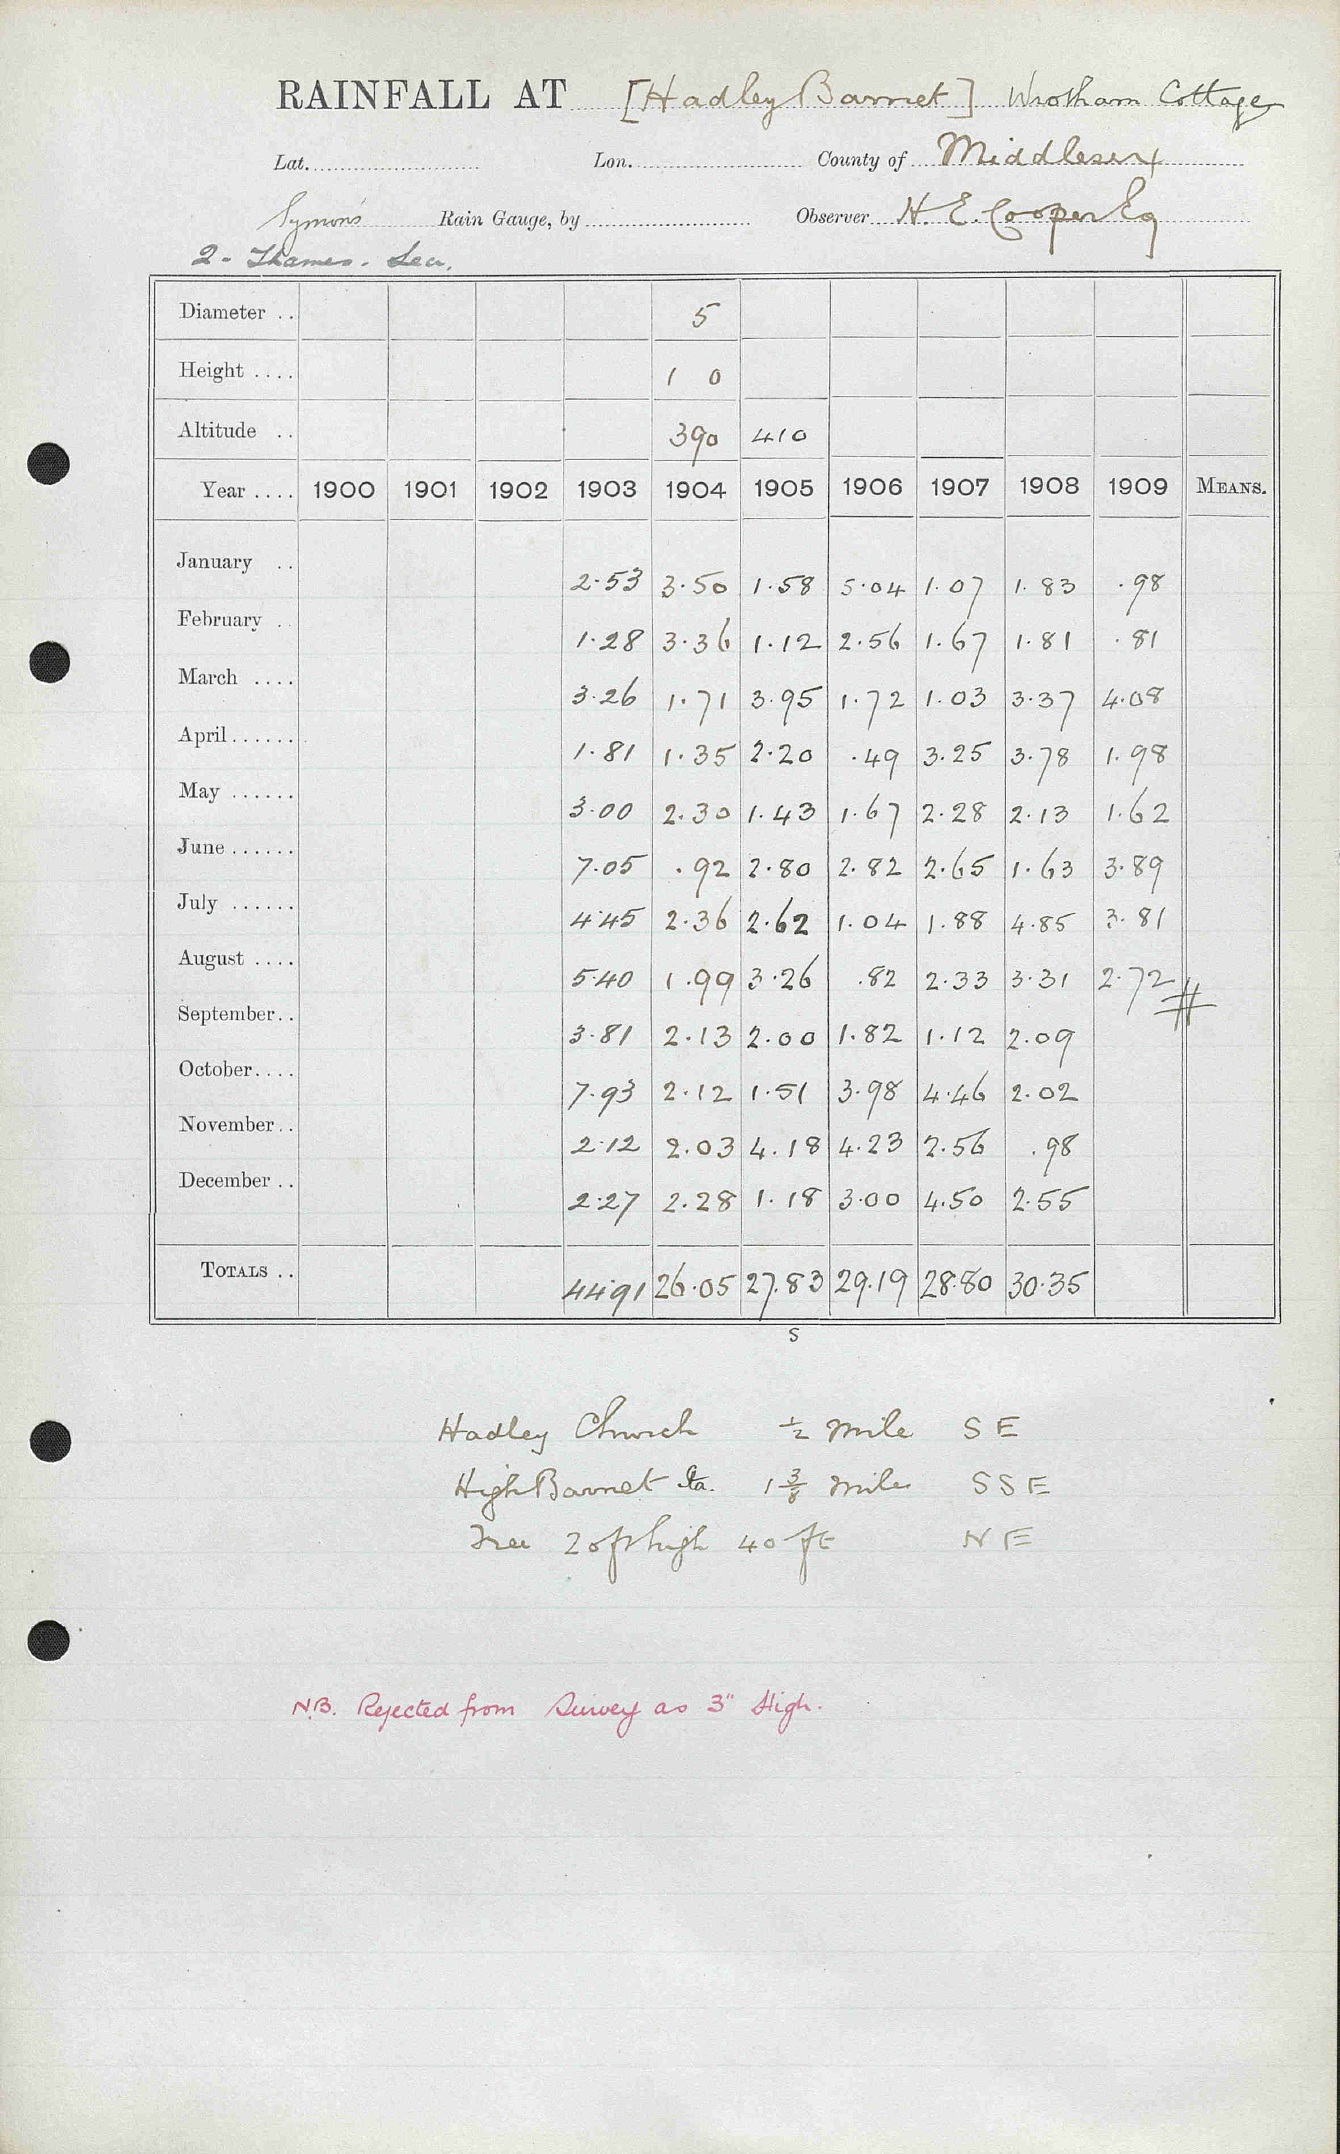 RAINFALL AT [Hadley Barnet] Wrotham Cottage
Lat. Lon. County of Middlesex
Symons Rain Gauge, by Observer H. E. Cooper Esq
2 - Thames - Lea.
Diameter .. 5
Height .... 1 0
Altitude .. 390 410
Year .... 1900 1901 1902 1903 1904 1905 1906 1907 1908 1909 MEANS.
January .. 2.53 3.50 1.58 5.04 1.07 1.83 .98
February .. 1.28 3.36 1.12 2.56 1.67 1.81 .81
March .... 3.26 1.71 3.95 1.72 1.03 3.37 4.08
April ...... 1.81 1.35 2.20 .49 3.25 3.78 1.98
May ...... 3.00 2.30 1.43 1.67 2.28 2.13 1.62
June ...... 7.05 .92 2.80 2.82 2.65 1.63 3.89
July ...... 4.45 2.36 2.62 1.04 1.88 4.85 3.81
August .... 5.40 1.99 3.26 .82 2.33 3.31 2.72
September .. 3.81 2.13 2.00 1.82 1.12 2.09
October .... 7.93 2.12 1.51 3.98 4.46 2.02
November .. 2.12 2.03 4.18 4.23 2.56 .98
December .. 2.27 2.28 1.18 3.00 4.50 2.55
TOTALS .. 44.91 26.05 27.83 29.19 28.80 30.35
S
Hadley Church ½ mile SE
High Barnet Sta. 1 3/8 mile SSE
Tree 20ft high 40 ft NE
N.B. Rejected from Survey as 3" High.